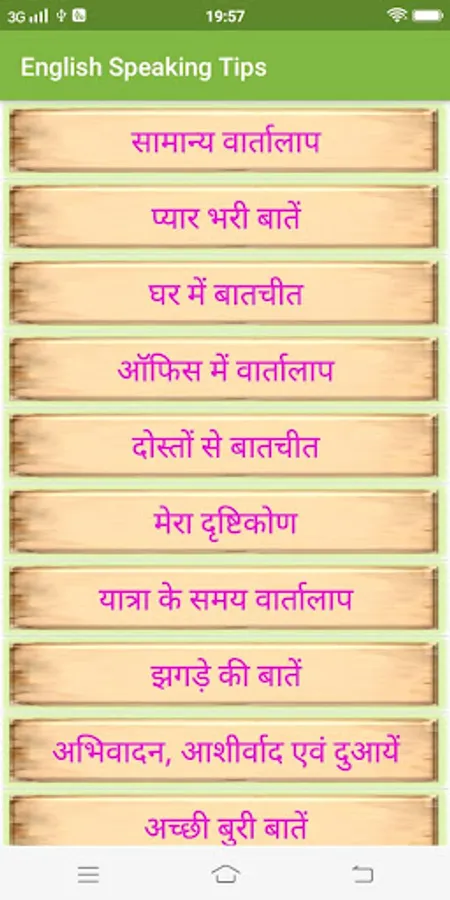 3G 19:57
English Speaking Tips
सामान्य वार्तालाप
प्यार भरी बातें
घर में बातचीत
ऑफिस में वार्तालाप
दोस्तों से बातचीत
मेरा दृष्टिकोण
यात्रा के समय वार्तालाप
झगड़े की बातें
अभिवादन, आशीर्वाद एवं दुआयें
अच्छी बुरी बातें